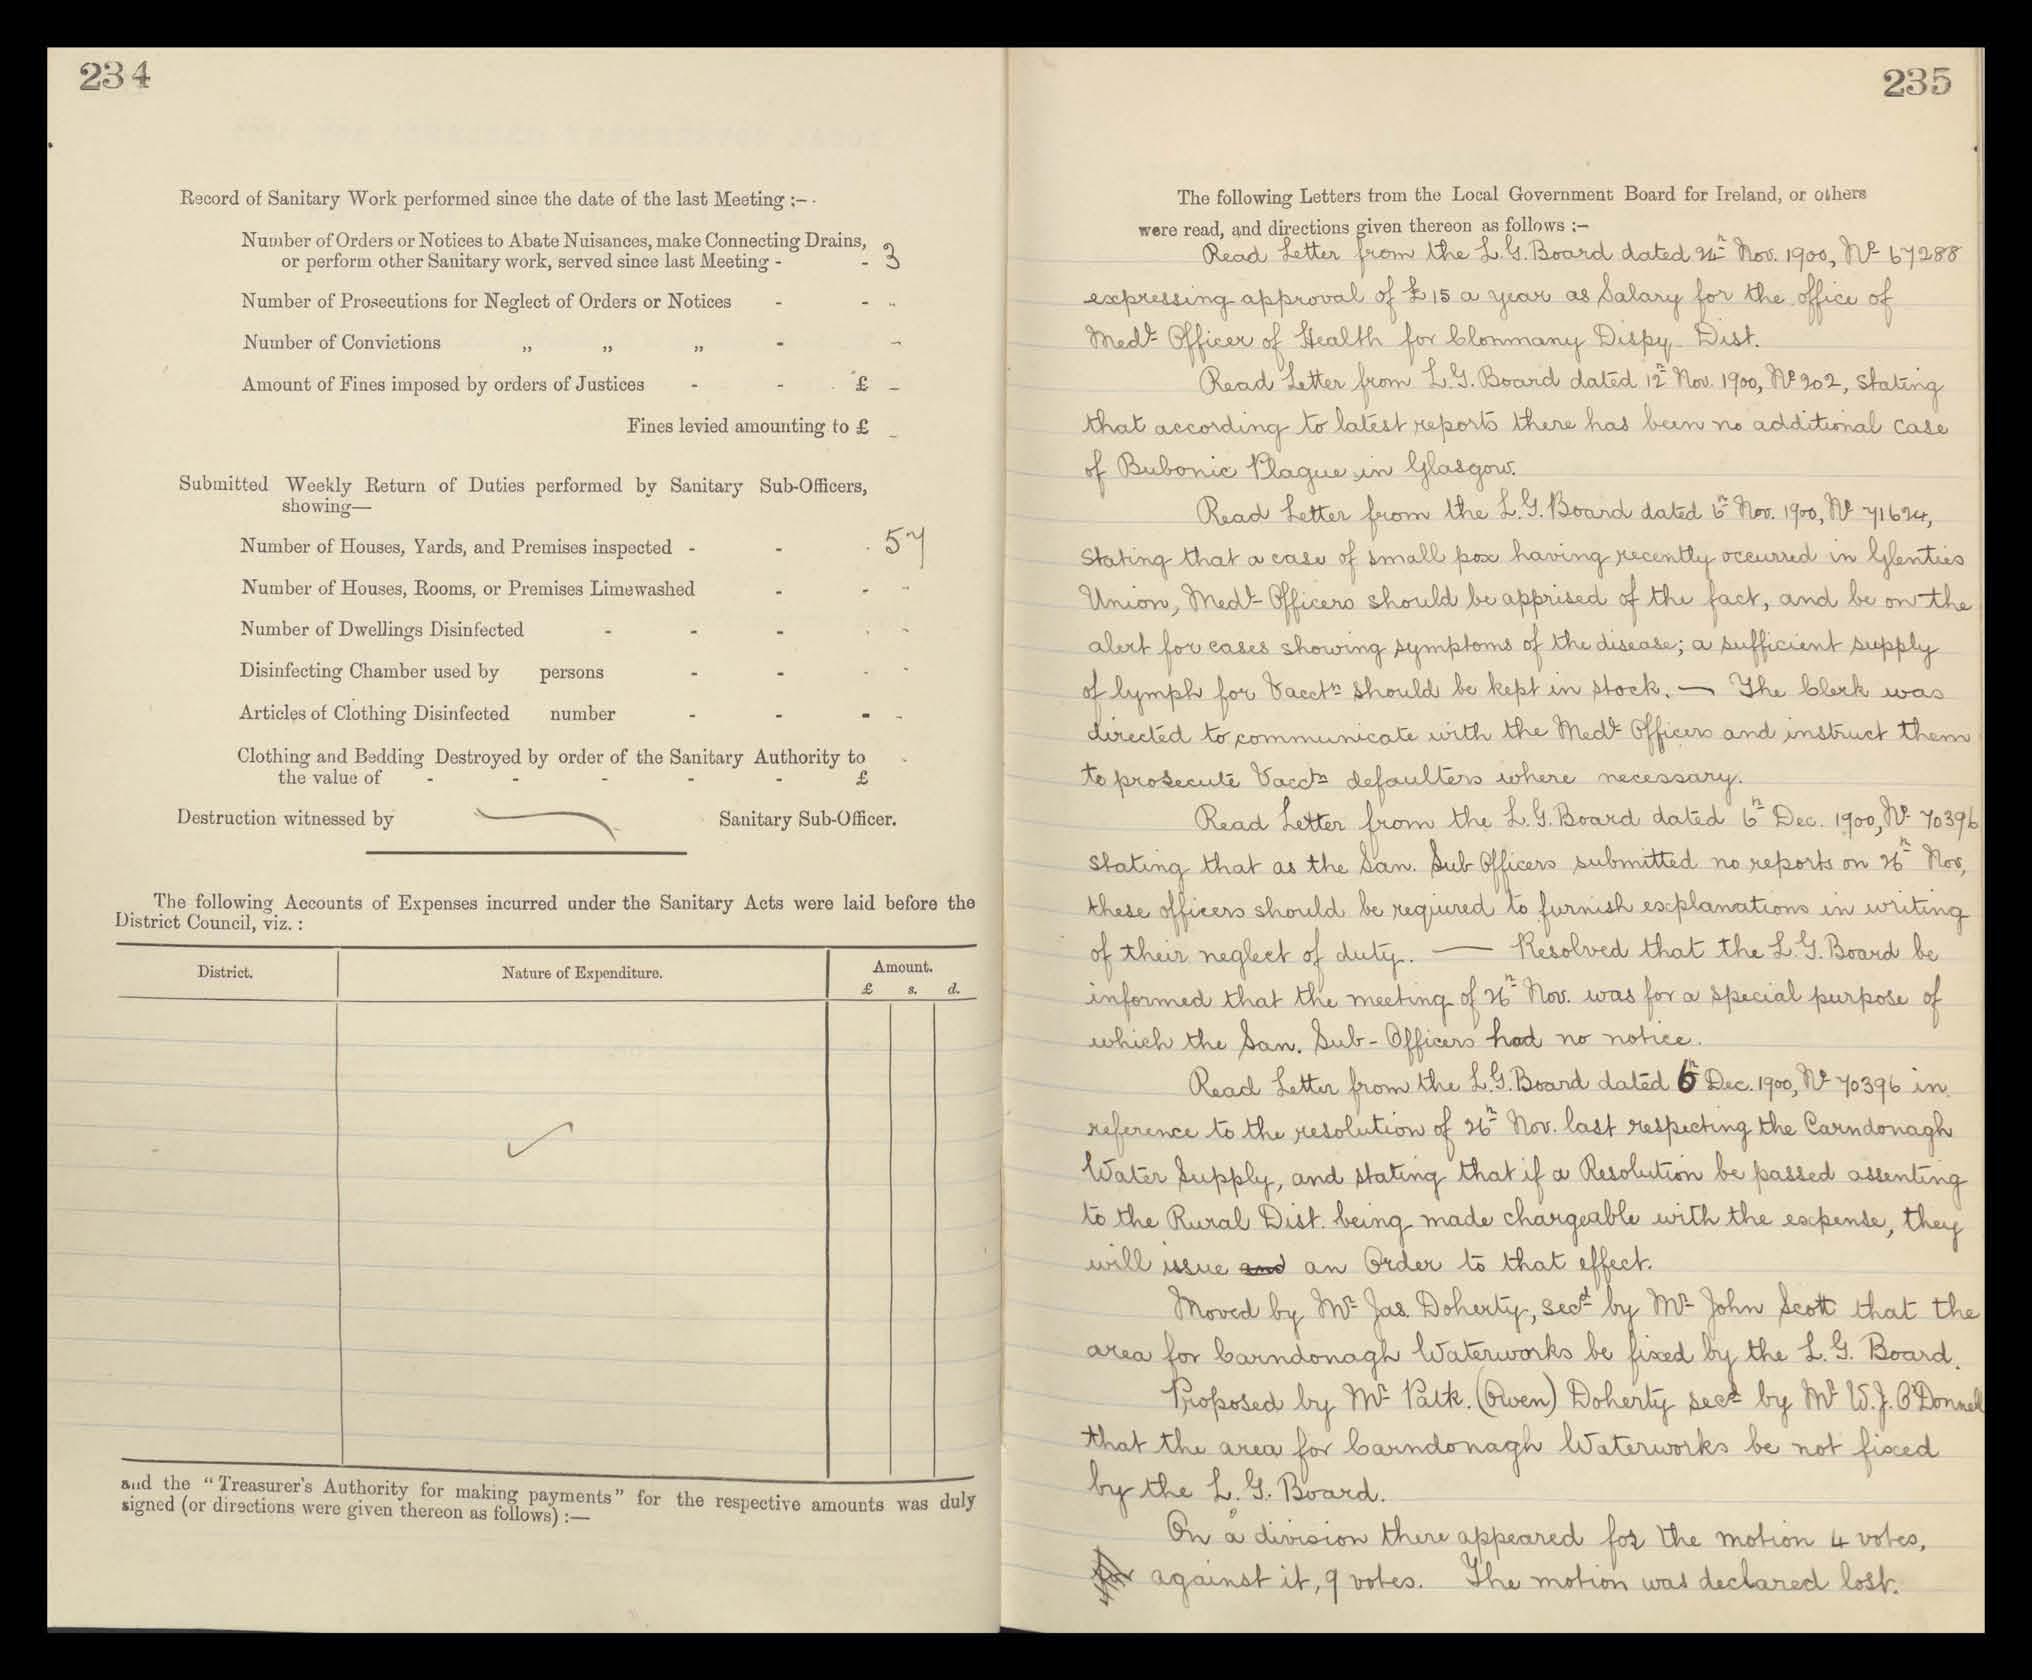 234
Record of Sanitary Work performed since the date of the last Meeting :–
Number of Orders or Notices to Abate Nuisances, make Connecting Drains,
or perform other Sanitary work, served since last Meeting - - 3
Number of Prosecutions for Neglect of Orders or Notices - - ..
Number of Convictions „ „ „ - -
Amount of Fines imposed by orders of Justices - - £ -
Fines levied amounting to £ -
Submitted Weekly Return of Duties performed by Sanitary Sub-Officers,
showing—
Number of Houses, Yards, and Premises inspected - - 57
Number of Houses, Rooms, or Premises Limewashed - - -
Number of Dwellings Disinfected - - - -
Disinfecting Chamber used by persons - - -
Articles of Clothing Disinfected number - - - -
Clothing and Bedding Destroyed by order of the Sanitary Authority to
the value of - - - - - £ -
Destruction witnessed by Sanitary Sub-Officer.
The following Accounts of Expenses incurred under the Sanitary Acts were laid before the
District Council, viz. :
District. Nature of Expenditure. Amount.
£ s. d.
and the "Treasurer's Authority for making payments" for the respective amounts was duly
signed (or directions were given thereon as follows) :—
235
The following Letters from the Local Government Board for Ireland, or others
were read, and directions given thereon as follows :–
Read Letter from the L.G. Board dated Nov. 1900, No 67288
expressing approval of £15 a year as Salary for the office of
Medl Officer of Health for Clonmany Dispy Dist.
Read Letter from L.G. Board dated 12n Nov. 1900, No 202, stating
that according to latest reports there has been no additional case
of Bubonic Plague in Glasgow.
Read Letter from the L.G. Board dated 6n Nov. 1900, No 71624,
stating that a case of small pox having recently occurred in Glenties
Union, Medl Officers should be apprised of the fact, and be on the
alert for cases showing symptoms of the disease; a sufficient supply
of lymph for Vacctn should be kept in stock. — The Clerk was
directed to communicate with the Medl Officers and instruct them
to prosecute Vacctn defaulters where necessary.
Read Letter from the L.G. Board dated 6n Dec. 1900, No 70396
stating that as the San. Sub Officers submitted no reports on 26n Nov,
these officers should be required to furnish explanations in writing
of their neglect of duty. — Resolved that the L.G. Board be
informed that the meeting of 26n Nov. was for a special purpose of
which the San. Sub-Officers had no notice.
Read Letter from the L.G. Board dated 6n Dec. 1900, No 70396 in
reference to the resolution of 26n Nov. last respecting the Carndonagh
Water Supply, and stating that if a Resolution be passed assenting
to the Rural Dist. being made chargeable with the expense, they
will issue and an Order to that effect.
Moved by Mr Jas. Doherty, secd by Mr John Scott that the
area for Carndonagh Waterworks be fixed by the L.G. Board.
Proposed by Mr Patk. (Owen) Doherty secd by Mr W.J. O'Donnell
that the area for Carndonagh Waterworks be not fixed
by the L.G. Board.
On a division there appeared for the motion 4 votes,
against it, 9 votes. The motion was declared lost.